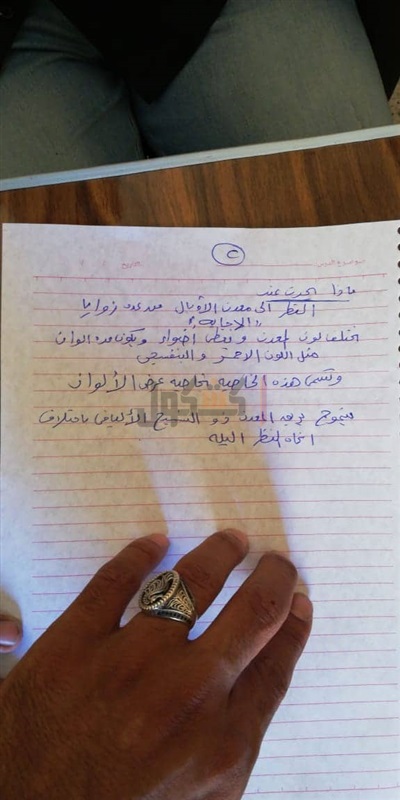 ماذا يحدث عند
النظر الى معدن الأوبال من عدة زوايا
"الاجابة"
اختلف لون المعدن و يعطي أضواء ويكون عدة الوان
مثل اللون الاحمر و البنفسجي
وتسمى هذه الخاصية بخاصية عرض الألوان
يتموج بريق المعدن ذو النسيج الأليافي باختلاف
اتجاه النظر اليه